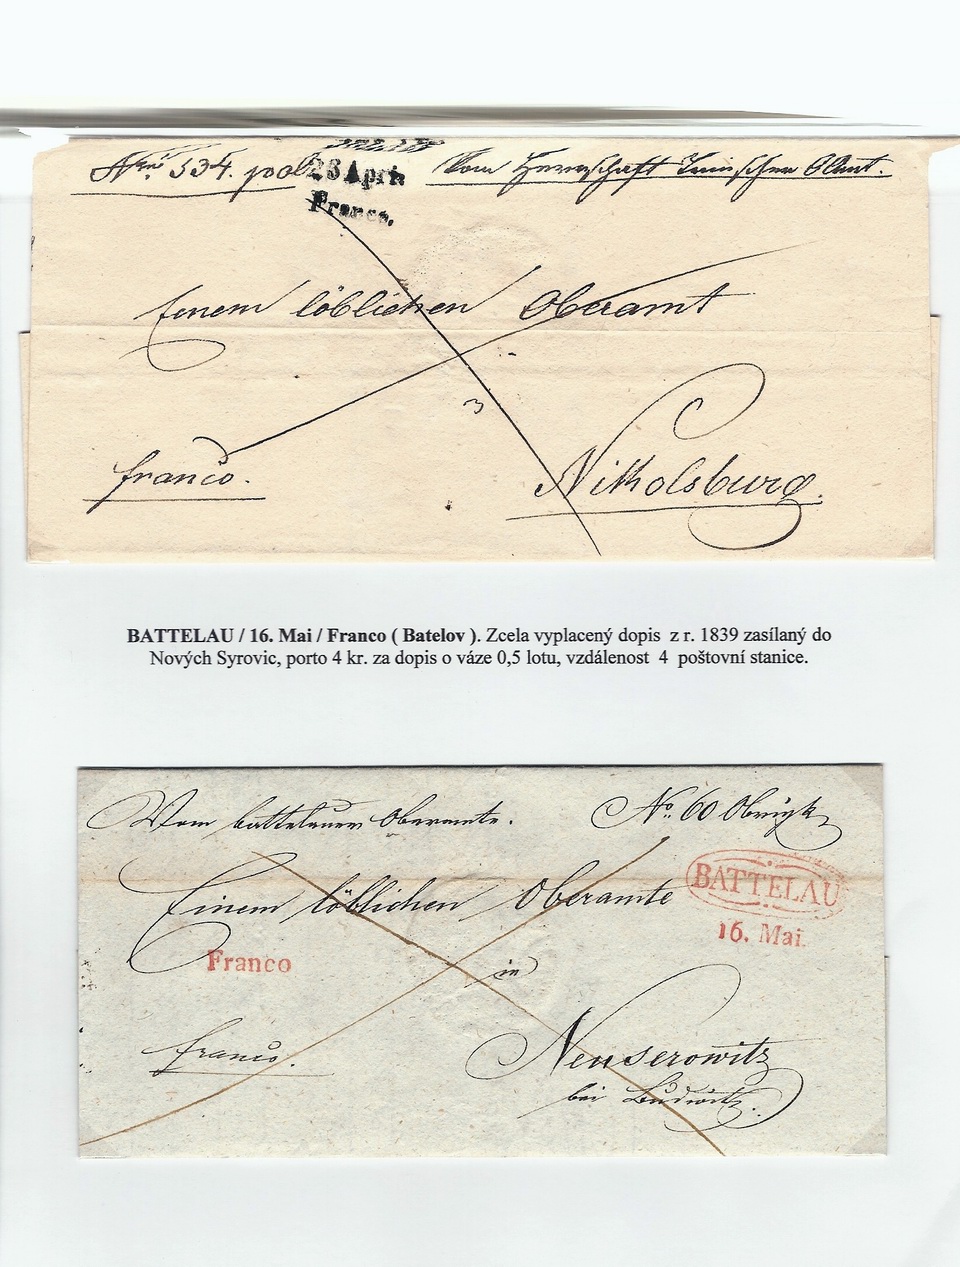 Nro 534. pol.
28 April
Franco.
Vom Herrschaft Amt.
Einem löblichen Oberamt
3
franco.
Nikolsburg.
BATTELAU / 16. Mai / Franco ( Batelov ). Zcela vyplacený dopis z r. 1839 zasílaný do
Nových Syrovic, porto 4 kr. za dopis o váze 0,5 lotu, vzdálenost 4 poštovní stanice.
Vom battelauer Oberamte.
No 60
Einem löblichen Oberamte
BATTELAU
16. Mai.
Franco
in
franco.
Neuserowitz
bei Budwitz.